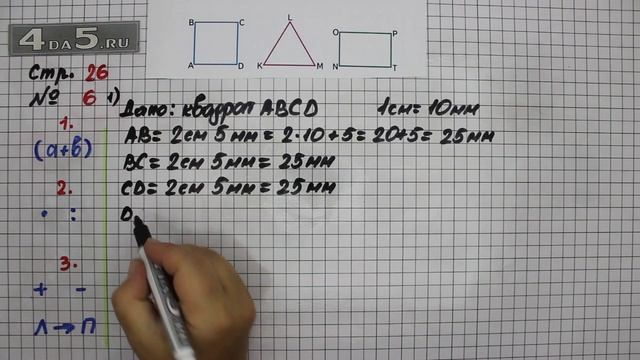 4DA5.RU
B C L O P
A D K M N T
Стр. 26
№ 6 1) Дано: квадрат ABCD 1см = 10мм
1. AB = 2см 5мм = 2·10+5 = 20+5 = 25мм
(а+в) BC = 2см 5мм = 25мм
2. CD = 2см 5мм = 25мм
· : D
3.
+ -
Л → П